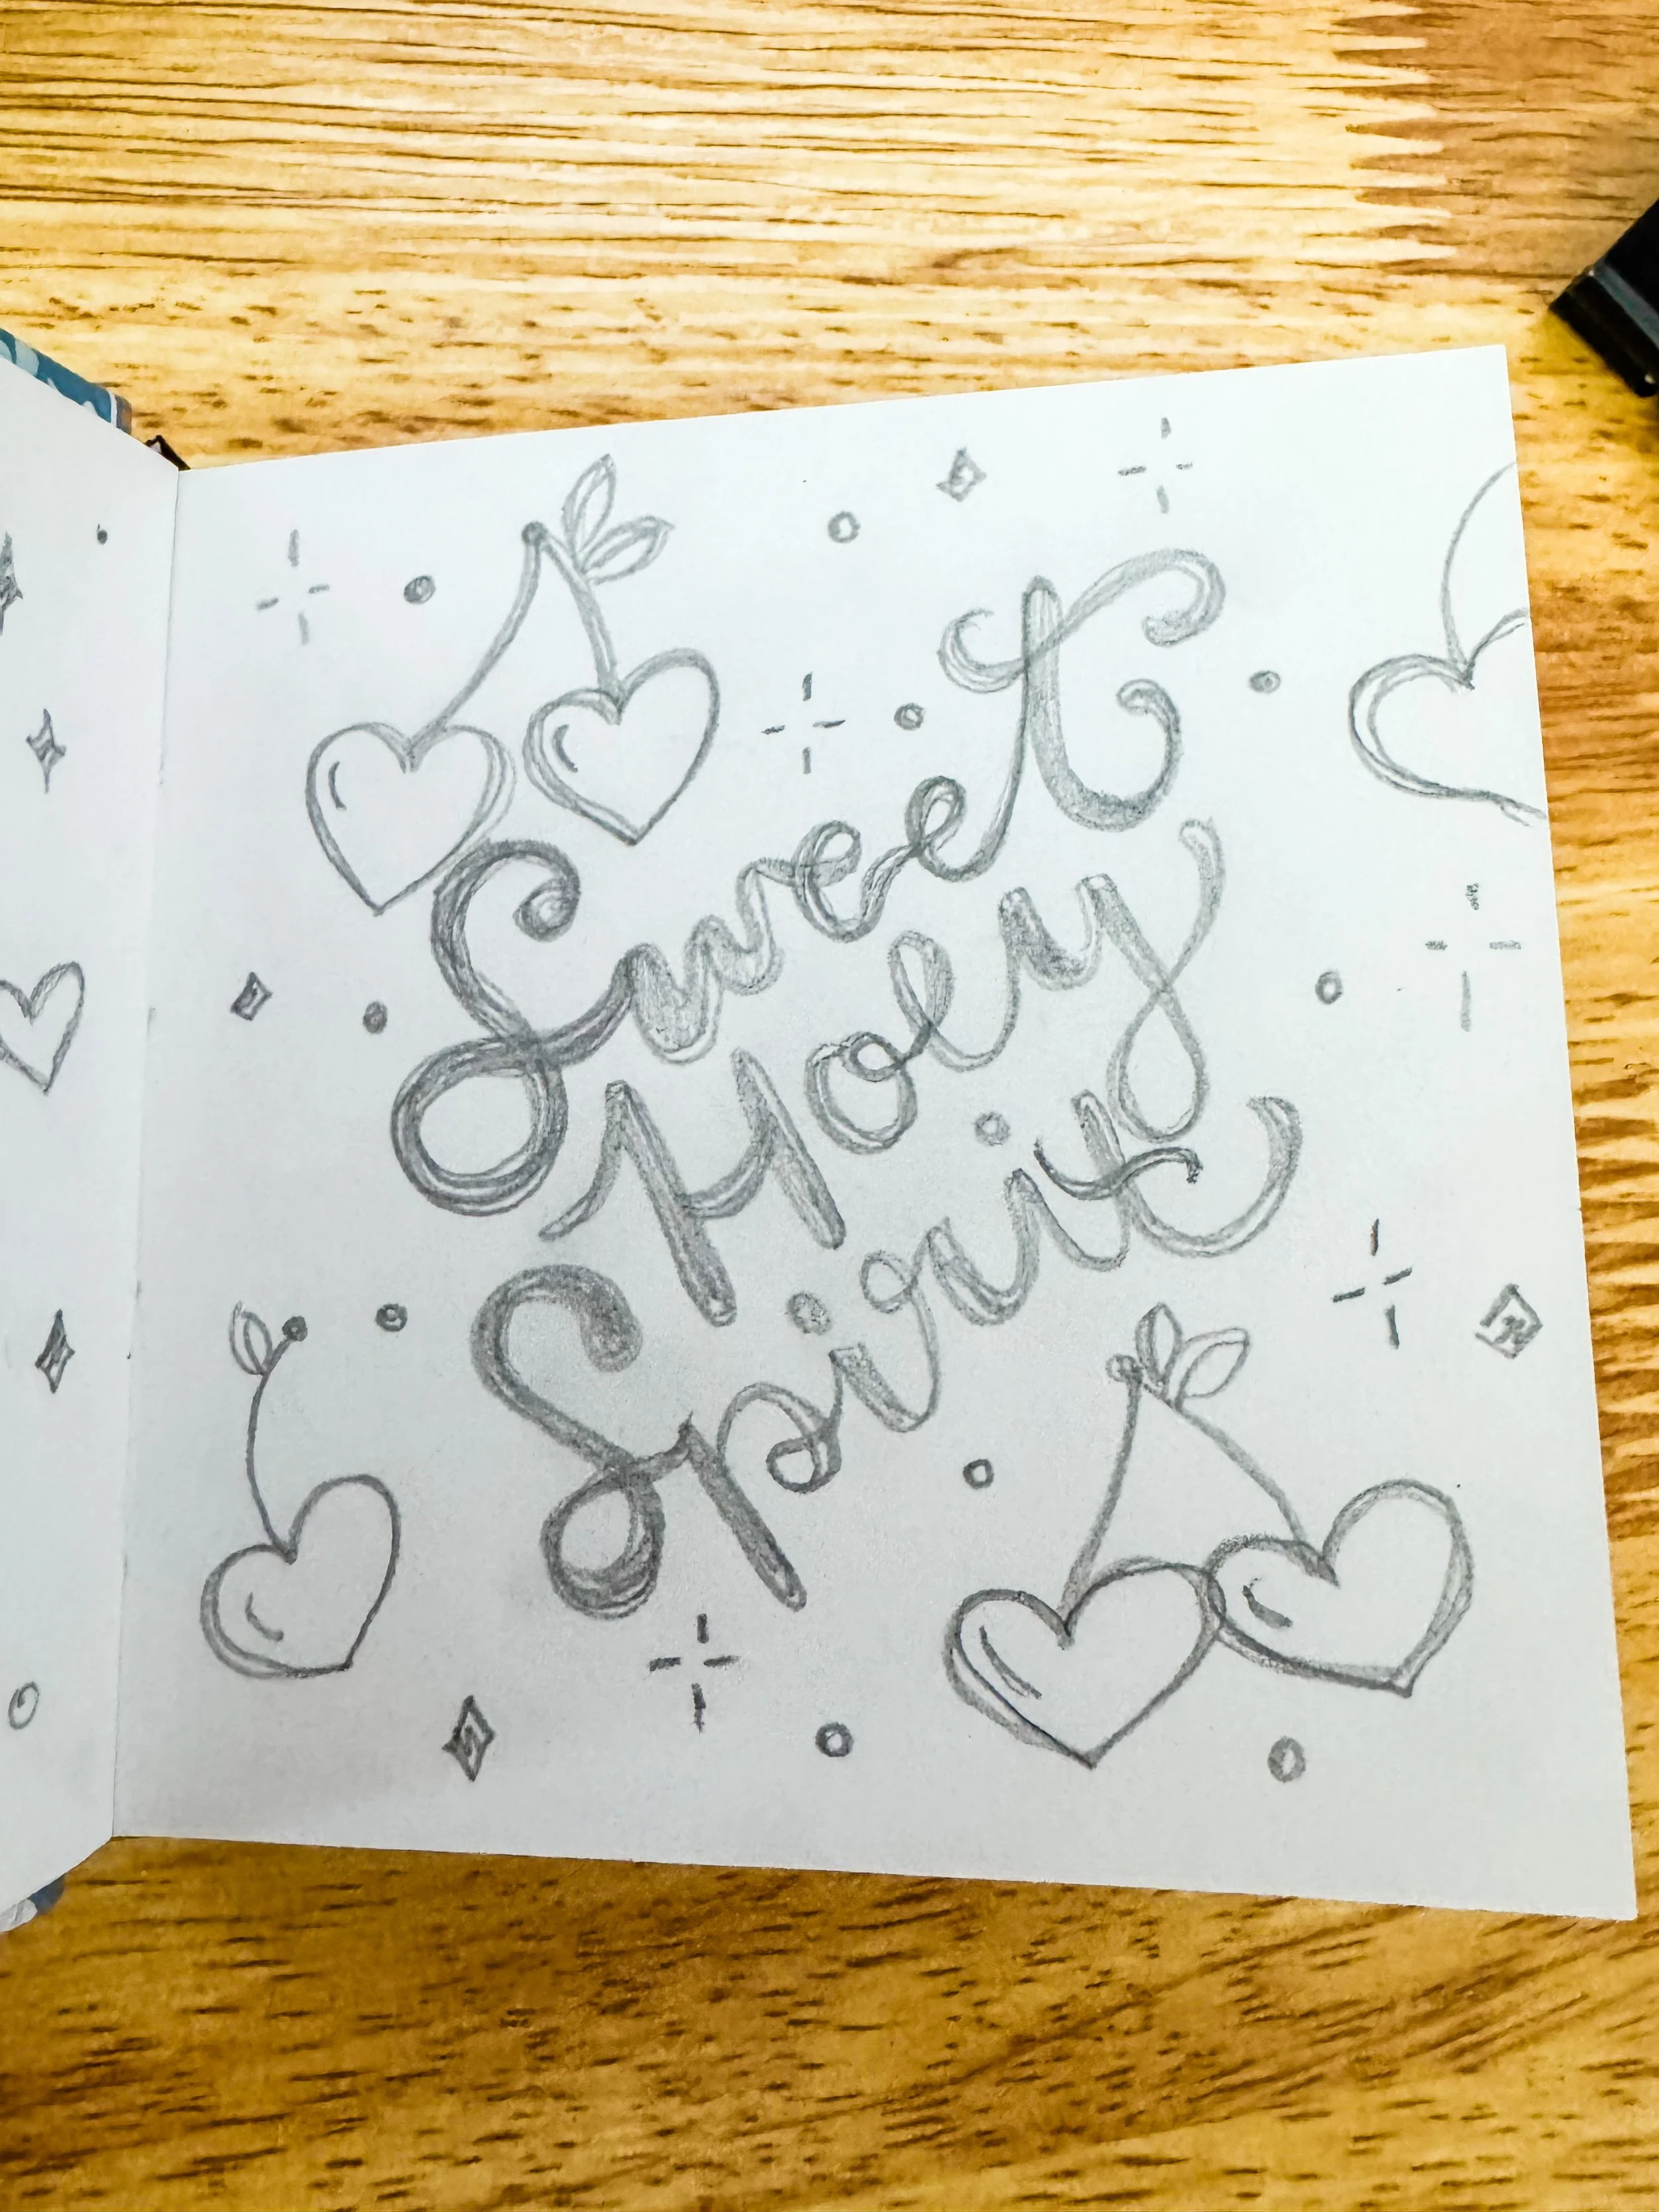 Sweet
Holy
Spirit